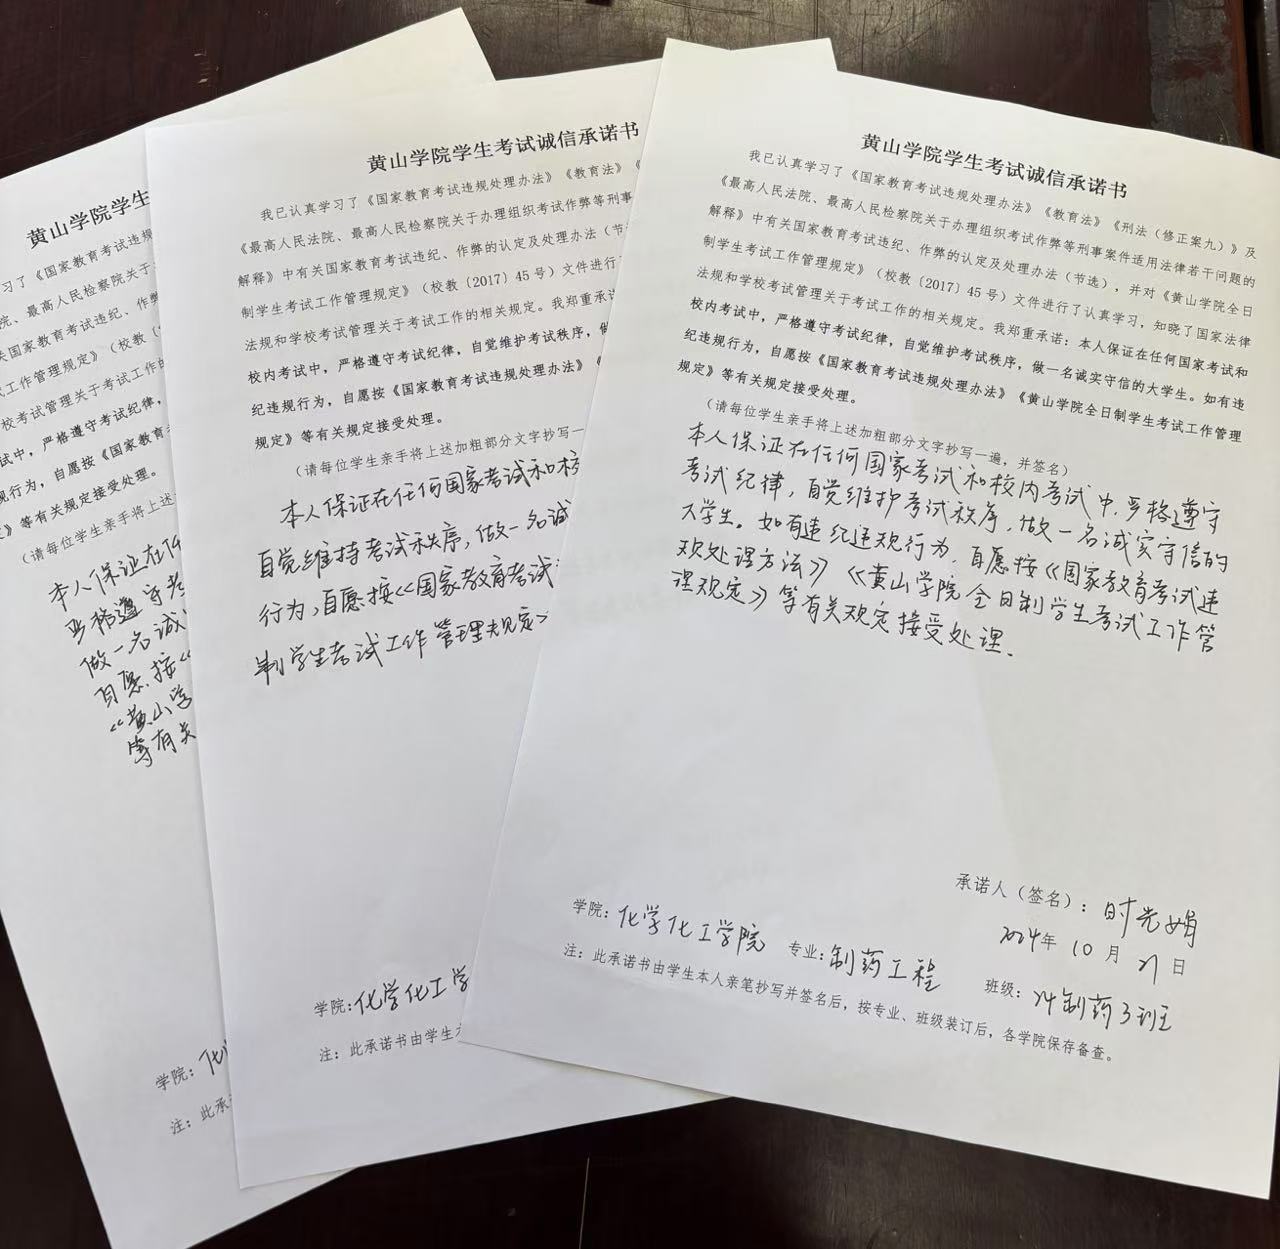 黄山学院学生考试诚信承诺书
我已认真学习了《国家教育考试违规处理办法》《教育法》《刑法（修正案九）》及
《最高人民法院、最高人民检察院关于办理组织考试作弊等刑事案件适用法律若干问题的
解释》中有关国家教育考试违纪、作弊的认定及处理办法（节选），并对《黄山学院全日
制学生考试工作管理规定》（校教〔2017〕45号）文件进行了认真学习，知晓了国家法律
法规和学校考试管理关于考试工作的相关规定。我郑重承诺：本人保证在任何国家考试和
校内考试中，严格遵守考试纪律，自觉维护考试秩序，做一名诚实守信的大学生。如有违
纪违规行为，自愿按《国家教育考试违规处理办法》《黄山学院全日制学生考试工作管理
规定》等有关规定接受处理。
（请每位学生亲手将上述加粗部分文字抄写一遍，并签名）
本人保证在任何国家考试和校内考试中，严格遵守
考试纪律，自觉维护考试秩序，做一名诚实守信的
大学生。如有违纪违规行为，自愿按《国家教育考试违
规处理方法》《黄山学院全日制学生考试工作管
理规定》等有关规定接受处理。
承诺人（签名）：时光娟
2024年10月21日
学院：化学化工学院 专业：制药工程 班级：24制药3班
注：此承诺书由学生本人亲笔抄写并签名后，按专业、班级装订后，各学院保存备查。
黄山学院学生考试诚信承诺书
我已认真学习了《国家教育考试违规处理办法》《教育法》《
《最高人民法院、最高人民检察院关于办理组织考试作弊等刑事
解释》中有关国家教育考试违纪、作弊的认定及处理办法（节
制学生考试工作管理规定》（校教〔2017〕45号）文件进行
法规和学校考试管理关于考试工作的相关规定。我郑重承诺
校内考试中，严格遵守考试纪律，自觉维护考试秩序，做
纪违规行为，自愿按《国家教育考试违规处理办法》《
规定》等有关规定接受处理。
（请每位学生亲手将上述加粗部分文字抄写一
本人保证在任何国家考试和校
自觉维持考试秩序，做一名诚
行为，自愿按《国家教育考试
制学生考试工作管理规定》
学院：化学化工学
注：此承诺书由学生
黄山学院学生
习了《国家教育考试违规
院、最高人民检察院关于
关国家教育考试违纪、作弊
工作管理规定》（校教〔
校考试管理关于考试工作的
试中，严格遵守考试纪律，
规行为，自愿按《国家教育
》等有关规定接受处理。
（请每位学生亲手将上述
本人保证在任
严格遵守考
做一名诚
自愿，按《
《黄山学
等有关
学院：化
注：此承